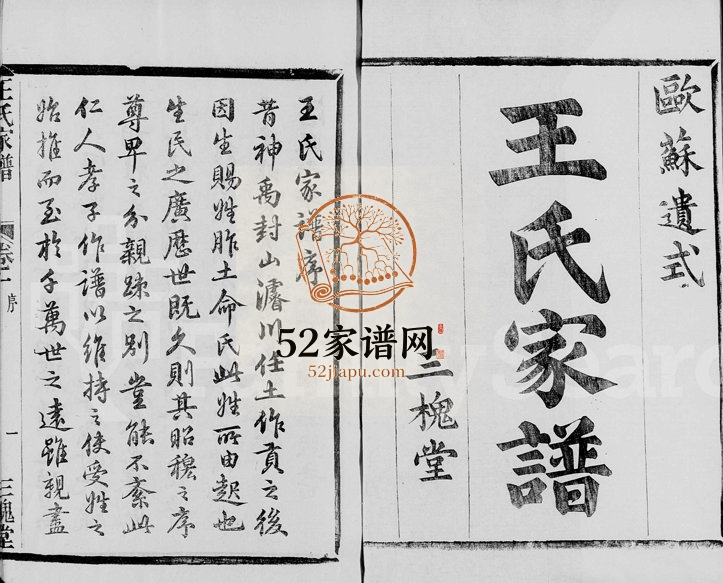 歐蘇遺式
王氏家譜
三槐堂
王氏家譜序
昔神禹封山濬川任土作貢之後
因生賜姓胙土命氏此姓所由起也
生民之廣歷世既久則其昭穆之序
尊卑之分親疎之别豈能不紊此
仁人孝子作譜以維持之使受姓之
始推而至於千萬世之遠雖親盡
王氏家譜
卷一
序
一
三槐堂
52家谱网
52jiapu.com